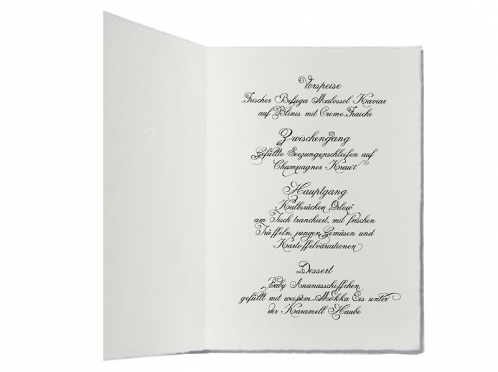 Vorspeise
Frischer Beluga Malossol Kaviar
auf Blinis mit Creme Fraiche
Zwischengang
Gefüllte Seezungenschleifen auf
Champagner Kraut
Hauptgang
Kalbsrücken Orlow
am Tisch tranchiert, mit frischen
Trüffeln, jungen Gemüsen und
Kartoffelvariationen
Dessert
Baby Ananasschiffchen,
gefüllt mit weißem Mokka Eis unter
der Karamell Haube